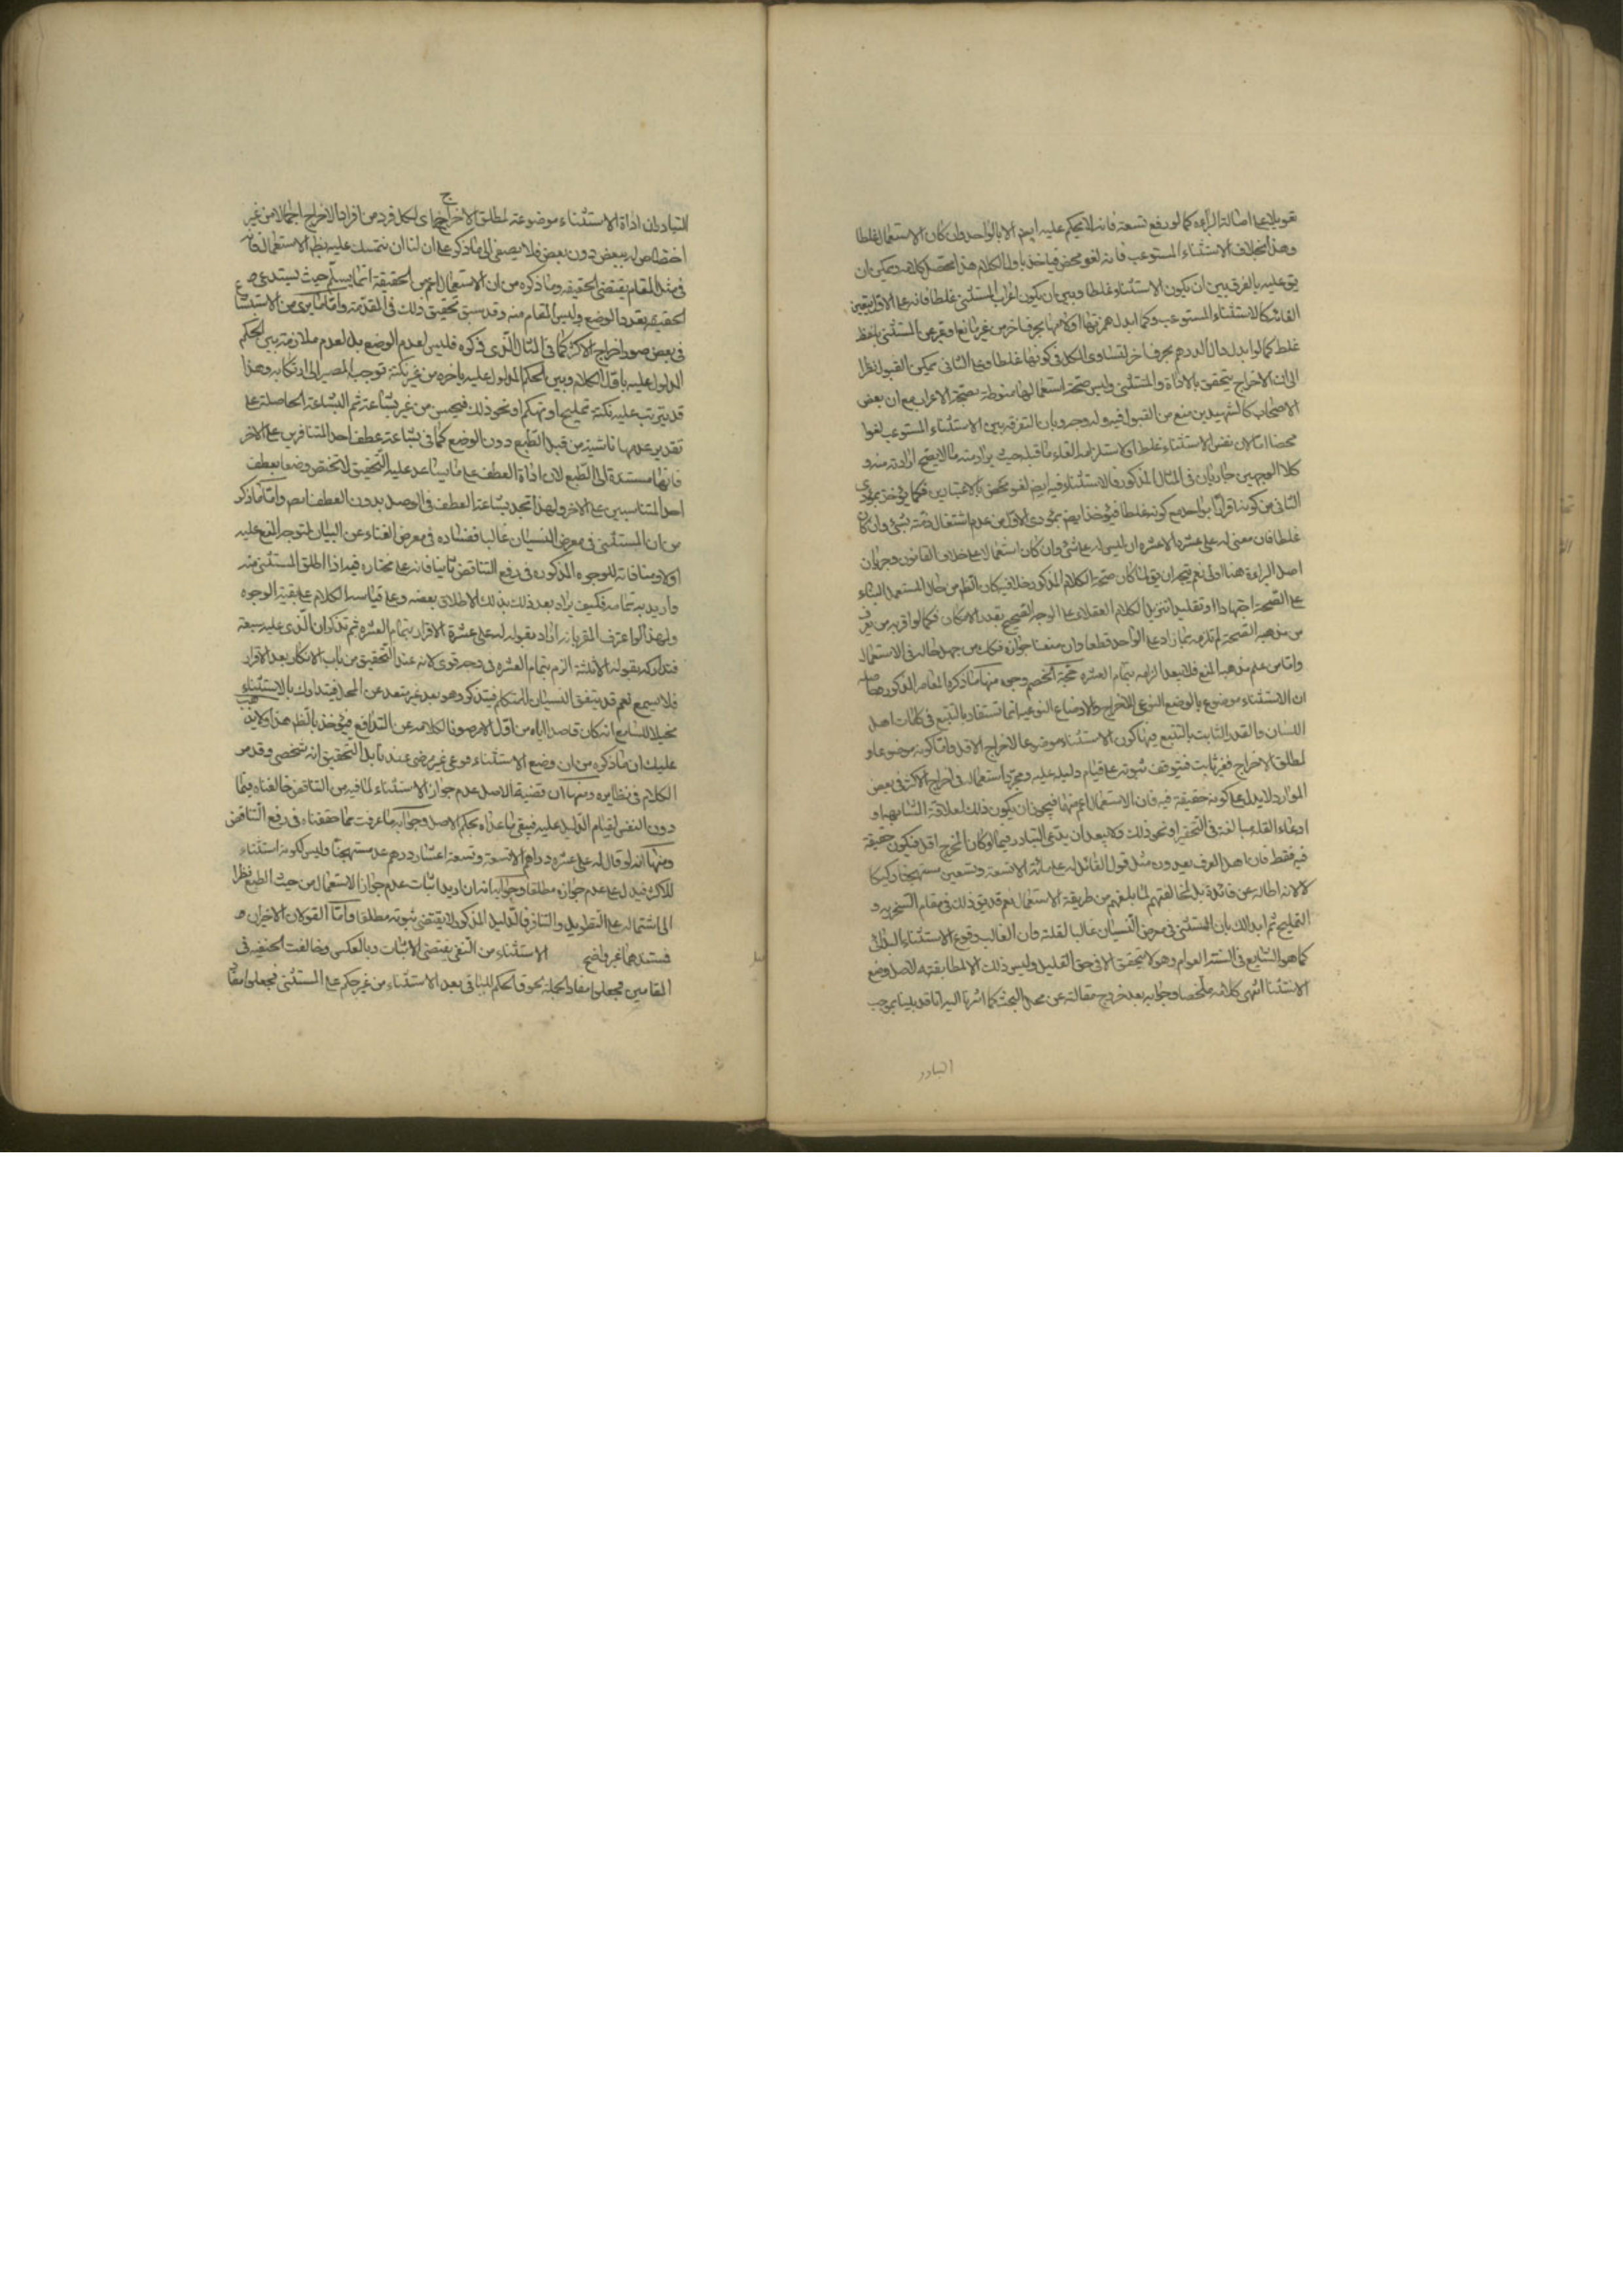 تعويلا على اصالة البراءة كما لو رفع تسعة فانه لا يحكم عليه ايضا الا بالواحد وان كان الاستعمال غلطا
وهذا بخلاف الاستثناء المستوعب فانه لغو محض فياخذ باول الكلام هذا محصل كلامه ويمكن ان
يق عليه بالفرق بين ان يكون الاستثناء غلطا وبين ان يكون اعراب المستثنى غلطا فانه على الاول يتعين
الغائه كالاستثناء المستوعب وكما ابدل همزتها او لامها بحرف اخر من غير مانع او عبر عن المستثنى بلفظ
غلط كما لو ابدل دال الدرهم بحرف اخر لتساوى الكل فى كونها غلطا وعلى الثانى يمكن القبول نظرا
الى ان الاخراج يتحقق بالاداة والمستثنى وليس صحة استعمالها منوطة بصحة الاعراب مع ان بعض
الاصحاب كالشهيدين منع من القبول فيه وله وجه وبان التفرقة بين الاستثناء المستوعب لغوا
محضا اما لان نفس الاستثناء غلط او لاستلزامه الغاء ما قبله حيث يراد منه ما لا يصح ارادته منه و
كلا الوجهين جاريان فى المثال المذكور فالاستثناء فيه ايضا لغو محض بالاعتبارين فكما يؤخذ بمؤدى
الثانى من كونه اقرارا بواحد مع كونه غلطا فيؤخذ ايضا بمؤدى الاول من عدم اشتغال ذمته بشئ وان كان
غلطا فان معنى له على عشرة الا عشرة ان ليس له على شئ وان كان استعمالا على خلاف القانون وجريان
اصل البراءة هنا اولى نعم يتجه ان يق لما كان صحة الكلام المذكور خلافية كان الظ من حال المستعمل البناء
على الصحة اجتهادا او تقليدا تنزيل الكلام العقلاء على الوجه الصحيح بقدر الامكان فكما لو اقر به من يعرف
من مذهبه الصحة لم نلزمه بما زاد على الواحد قطعا وان منعنا جوازه فكك من جهل حاله فى الاستعمال
واما من علم مذهبه المنع فلا يبعد الزامه بتمام العشرة حجة الخصم وجوه منها ما ذكره المعاصر المذكور حاصله
ان الاستثناء موضوع بالوضع النوعى للاخراج والاوضاع النوعية انما تستفاد بالتتبع فى كلمات اهل
اللسان والقدر الثابت بالتتبع منها كون الاستثناء موضوعا لاخراج الاقل واما كونه موضوعا و
لمطلق الاخراج فغير ثابت فيتوقف ثبوته على قيام دليل عليه ومجرد استعماله فى اخراج الاكثر فى بعض
الموارد لا يدل على كونه حقيقة فيه فان الاستعمال اعم منها فيجوز ان يكون ذلك لعلاقة المشابهة او
ادعاء القلة مبالغة فى التحقير او نحو ذلك ولا يبعد ان يدعى التبادر فيما لو كان المخرج اقل فيكون حقيقة
فيه فقط فان اهل العرف يعدون مثل قول القائل له على مائة الا تسعة وتسعين مستهجنا ركيكا
لا لانه اطالة عن فائدة بل لمخالفتهم لما بلغهم من طريقة الاستعمال نعم قد يق ذلك فى مقام السخرية و
التمليح ثم ايد ذلك بان المستثنى فى معرض النسيان غالبا لقلته وان الغالب وقوع الاستثناء البدائى
كما هو الشايع فى السنة العوام وهو لا يتحقق الا فى حق القليل وليس ذلك الا لمطابقته لاصل وضع
الاستثناء انتهى كلامه ملخصا وجوابه بعد خروج مقالته عن محل البحث كما اشرنا اليه انا قد بينا بموجب
التبادر
التبادر ان اداة الاستثناء موضوعة لمطلق الاخراج اى لكل فرد من افراد الاخراج اجمالا من غير
اختصاص له ببعض دون بعض فلا يصغى الى ما ذكره على ان لنا ان نتمسك عليه بظ الاستعمال فانه
فى مثل المقام يقتضى الحقيقة وما ذكره من ان الاستعمال اعم من الحقيقة انما يسلم حيث يستدعى
الحقيقة تعدد الوضع وليس المقام منه وقد سبق تحقيق ذلك فى المقدمة واما ما يرى من الاستبشاع
فى بعض صور اخراج الاكثر كما فى المثال الذى ذكره فليس لعدم الوضع بل لعدم ملازمة بين الحكم
المدلول عليه باول الكلام وبين الحكم المدلول عليه باخره من غير نكتة توجب المصير الى ارتكابه وهذا
قد يترتب عليه نكتة تمليح او تهكم او نحو ذلك فيحسن من غير بشاعة ثم البشاعة الحاصلة على
تقدير عدمها ناشية من قبل الطبع دون الوضع كما فى بشاعة عطف احد المتنافرين على الاخر
فانها مستندة الى الطبع لان اداة العطف على ما يساعد عليه التحقيق لا تختص وضعا بعطف
احد المتناسبين على الاخر ولهذا تجد بشاعة العطف فى الوصل بدون العطف ايضا واما ما ذكر
من ان المستثنى فى معرض النسيان غالبا ففساده فى معرض الغناء عن البيان لتوجه المنع عليه
اولا ومنافاته للوجوه المذكورة فى دفع التناقض ثانيا فانه على مختاره فيه اذا اطلق المستثنى منه
واريد به تمامه فكيف يراد بعد ذلك بذلك الاطلاق بعضه وعلى قياسه الكلام على بقية الوجوه
ولهذا لو اعترف المقر بانه اراد بقوله له على عشرة الاقرار بتمام العشرة ثم تذكر ان الذى عليه سبعة
فتداركه بقوله الا ثلثة الزم بتمام العشرة فى وجه قوى لانه عند التحقيق من باب الانكار بعد الاقرار
فلا يسمع نعم قد يتفق النسيان للمتكلم فيتذكر وهو بعد غير متعد عن المحل فيتدارك بالاستثناء
تخيلا للسامع انه كان قاصدا اياه من اول الامر صونا لكلامه عن التدافع فيؤخذ بالظ هذا ولا يذهب
عليك ان ما ذكره من ان وضع الاستثناء نوعى غير مرضى عندنا بل التحقيق انه شخصى وقد مر
الكلام فى نظايره ومنها ان قضية الاصل عدم جواز الاستثناء لما فيه من التناقض خالفناه فيما
دون النصف لقيام الدليل عليه فيبقى ما عداه بحكم الاصل وجوابه ما عرفت مما حققناه فى رفع التناقض
ومنها انه لو قال له على عشرة دراهم الا تسعة وتسعة اعشار درهم عد مستهجنا وليس الا لكونه استثناء
للاكثر فيدل على عدم جوازه مطلقا وجوابه انه ان اريد اثبات عدم جواز الاستعمال من حيث الطبع نظرا
الى اشتماله على التطويل والتنافر فالدليل المذكور لا يقتضى ثبوته مطلقا واما القولان الاخيران
فمستندهما غير واضح الاستثناء من النفى يقتضى الاثبات وبالعكس وخالفت الحنفية فى
المقامين فجعلوا مفاد الجملة لحوق الحكم للباقى بعد الاستثناء من غير حكم على المستثنى فجعلوا مفاد